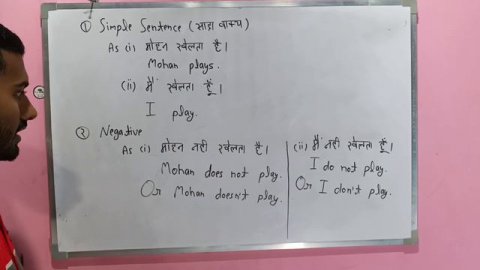 ① Simple Sentence (सादा वाक्य)
As (i) मोहन खेलता है।
Mohan plays.
(ii) मैं खेलता हूँ।
I play.
② Negative
As (i) मोहन नही खेलता है।
Mohan does not play.
Or Mohan doesn't play.
(ii) मैं नही खेलता हूँ।
I do not play.
Or I don't play.